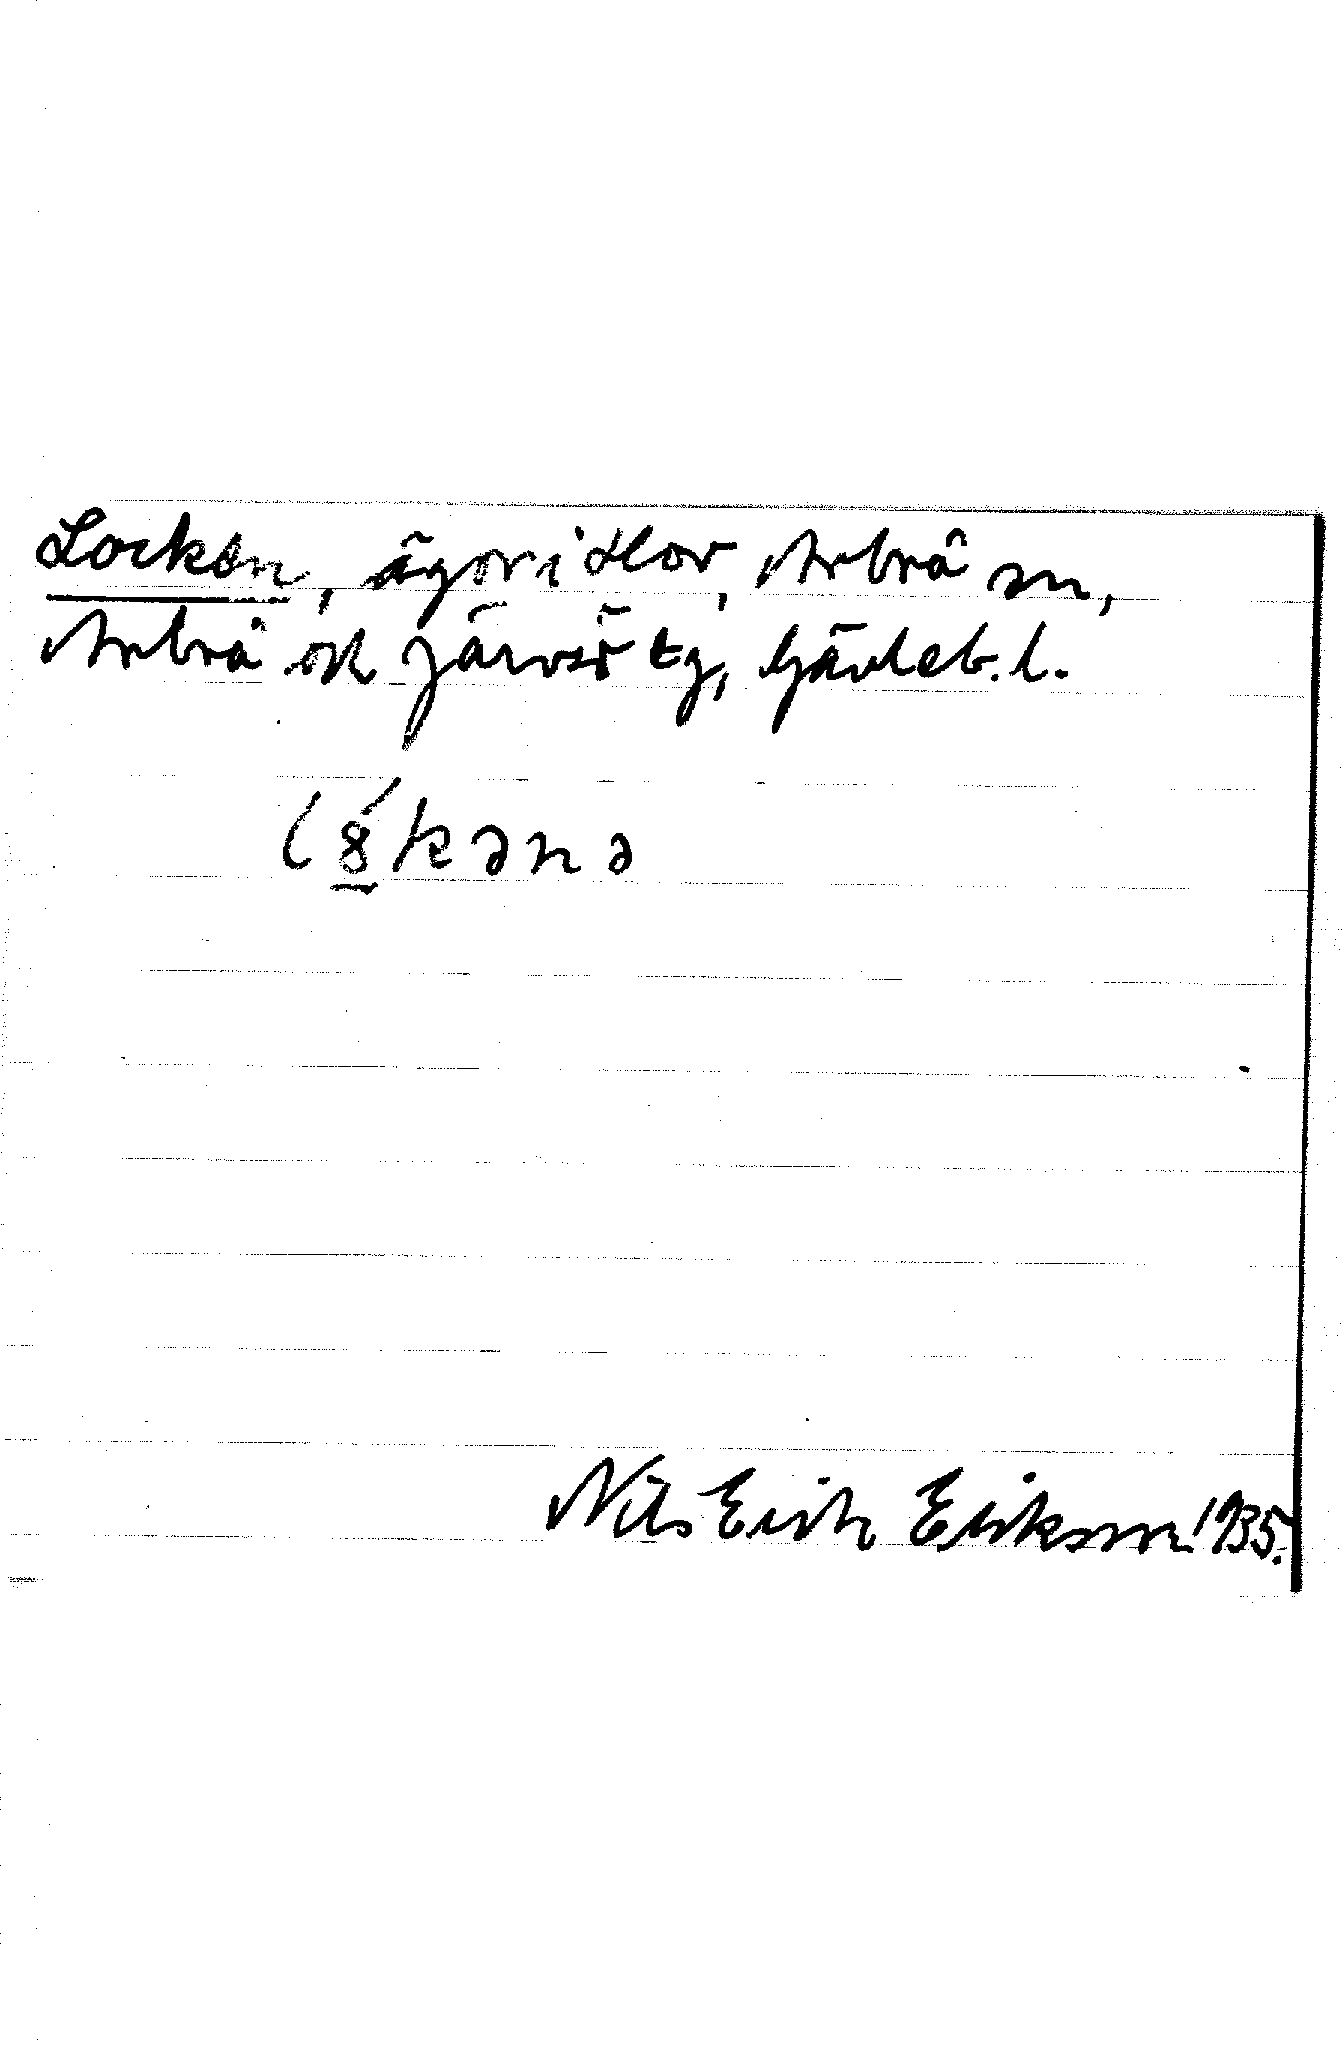 Locken, ägor i Hov, Arbrå sn,
Arbrå och Järvsö tg, Gävleb. l.
l8́kənə
Nils Erik Erikson 1935.